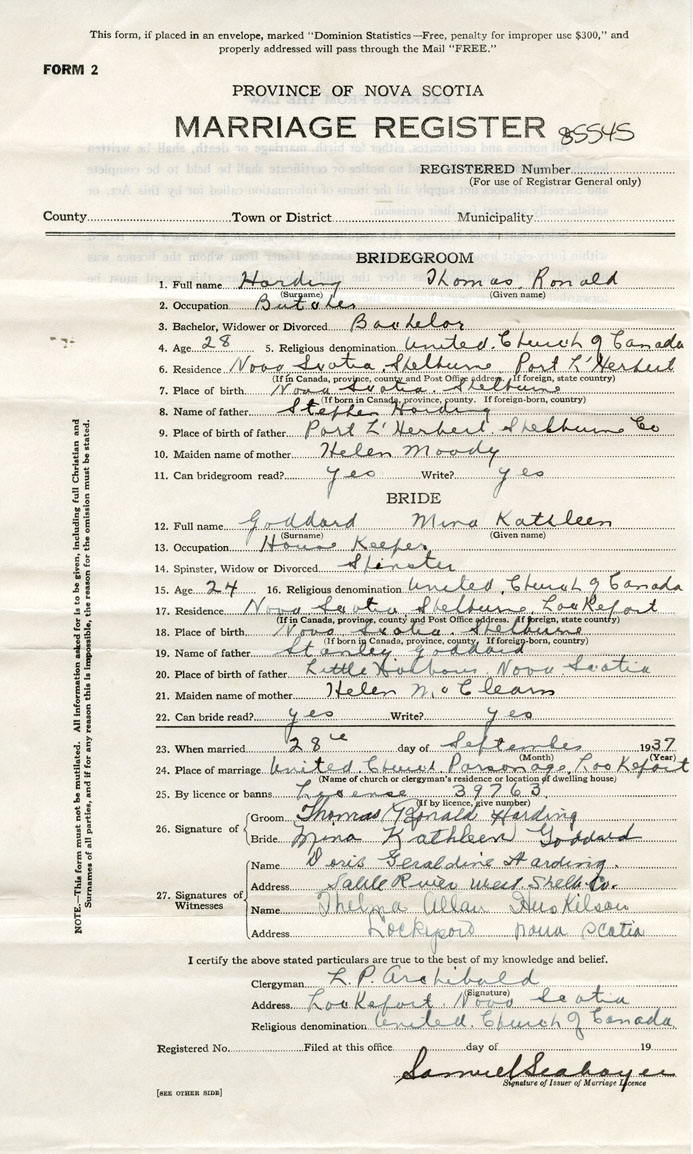 This form, if placed in an envelope, marked "Dominion Statistics—Free, penalty for improper use $300," and
properly addressed will pass through the Mail "FREE."
FORM 2
PROVINCE OF NOVA SCOTIA
MARRIAGE REGISTER 85545
REGISTERED Number
(For use of Registrar General only)
County Town or District Municipality
BRIDEGROOM
1. Full name Harding Thomas Ronald
(Surname) (Given name)
2. Occupation Butcher
3. Bachelor, Widower or Divorced Bachelor
4. Age 28 5. Religious denomination United Church of Canada
6. Residence Nova Scotia Shelburne Port L'Herbert
(If in Canada, province, county and Post Office address. If foreign, state country)
7. Place of birth Nova Scotia Shelburne
(If born in Canada, province, county. If foreign-born, country)
8. Name of father Stephen Harding
9. Place of birth of father Port L'Herbert, Shelburne Co
10. Maiden name of mother Helen Moody
11. Can bridegroom read? yes Write? yes
BRIDE
12. Full name Goddard Mina Kathleen
(Surname) (Given name)
13. Occupation House Keeper
14. Spinster, Widow or Divorced Spinster
15. Age 24 16. Religious denomination United Church of Canada
17. Residence Nova Scotia Shelburne Lockeport
(If in Canada, province, county and Post Office Address. If foreign, state country)
18. Place of birth Nova Scotia Shelburne
(If born in Canada, province, county. If foreign-born, country)
19. Name of father Stanley Goddard
20. Place of birth of father Little Harbour Nova Scotia
21. Maiden name of mother Helen McClearn
22. Can bride read? yes Write? yes
23. When married 28 day of September 1937
(Month) (Year)
24. Place of marriage United Church Parsonage, Lockeport
(Name of church or clergyman's residence or location of dwelling house)
25. By licence or banns License 39763
(If by licence, give number)
26. Signature of Groom Thomas Ronald Harding
Bride Mina Kathleen Goddard
27. Signatures of Witnesses
Name Doris Geraldine Harding.
Address Sable River West Shelb. Co.
Name Thelma Allan
Address Lockeport Nova Scotia
I certify the above stated particulars are true to the best of my knowledge and belief.
Clergyman L. P. Archibald
(Signature)
Address Lockeport Nova Scotia
Religious denomination United Church of Canada
Registered No. Filed at this office day of 19
Samuel
Signature of Issuer of Marriage Licence
[SEE OTHER SIDE]
NOTE.—This form must not be mutilated. All information asked for is to be given, including full Christian and
Surnames of all parties, and if for any reason this is impossible, the reason for the omission must be stated.